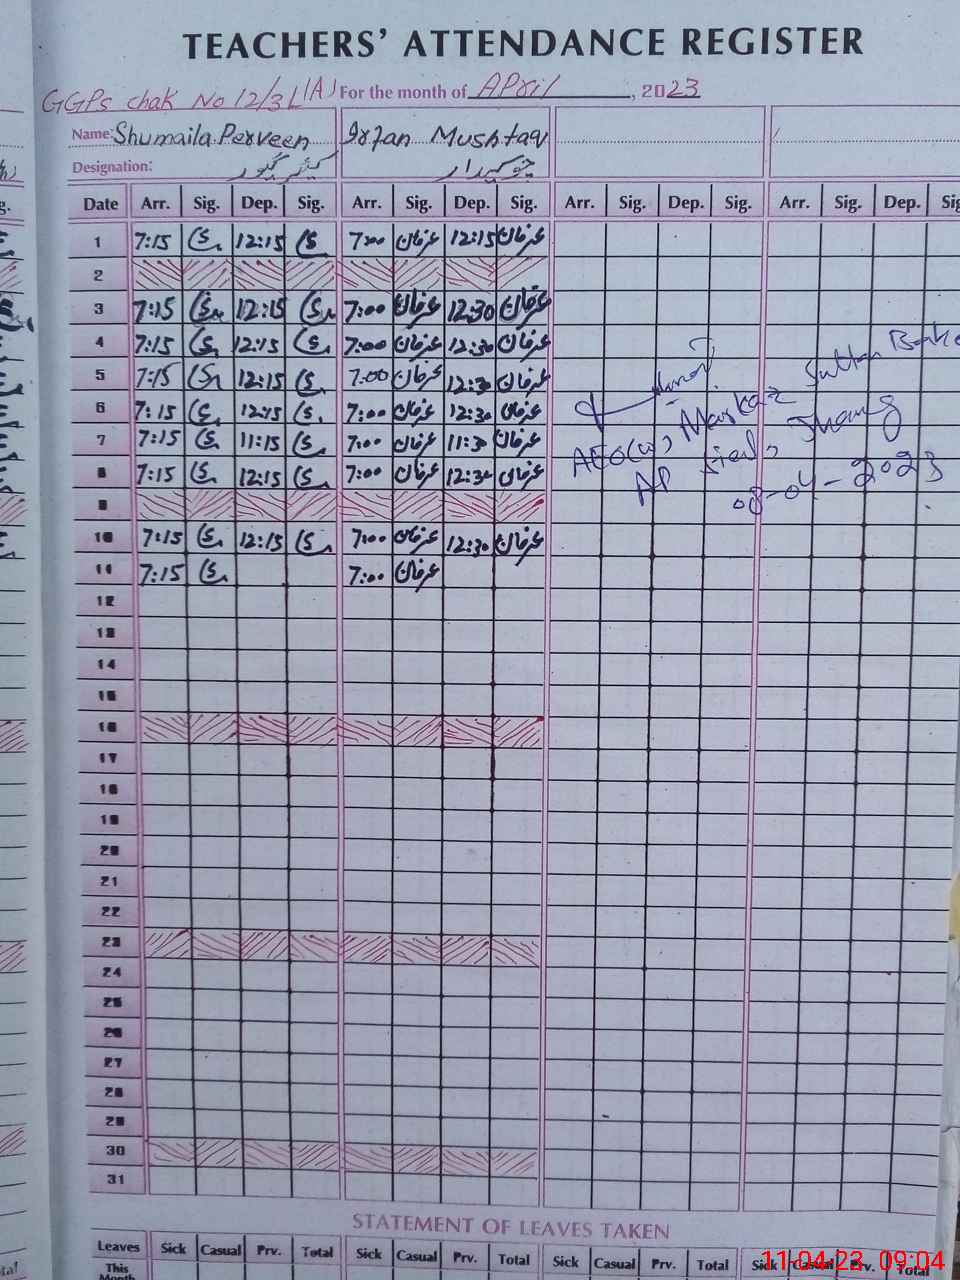 TEACHERS' ATTENDANCE REGISTER
GGPS chak No 12/3L(A) For the month of April, 2023
Name: Shumaila Perveen Irfan Mushtaq
Designation: کیئر گیور چوکیدار
Date Arr. Sig. Dep. Sig. Arr. Sig. Dep. Sig. Arr. Sig. Dep. Sig. Arr. Sig. Dep.
1 7:15 12:15 7:00 عرفان 12:15 عرفان
2
3 7:15 12:15 7:00 عرفان 12:30 عرفان
4 7:15 12:15 7:00 عرفان 12:30 عرفان
5 7:15 12:15 7:00 عرفان 12:30 عرفان
6 7:15 12:15 7:00 عرفان 12:30 عرفان
7 7:15 11:15 7:00 عرفان 11:30 عرفان
8 7:15 12:15 7:00 عرفان 12:30 عرفان
9
10 7:15 12:15 7:00 عرفان 12:30 عرفان
11 7:15 7:00 عرفان
AEO(W) Markaz Sultan
AP Jhang
08-04-2023
12
13
14
15
16
17
18
19
20
21
22
23
24
25
26
27
28
29
30
31
STATEMENT OF LEAVES TAKEN
Leaves Sick Casual Prv. Total Sick Casual Prv. Total Sick Casual Prv. Total Sick Casual Prv. Total
This Month
11.04.23 09:04